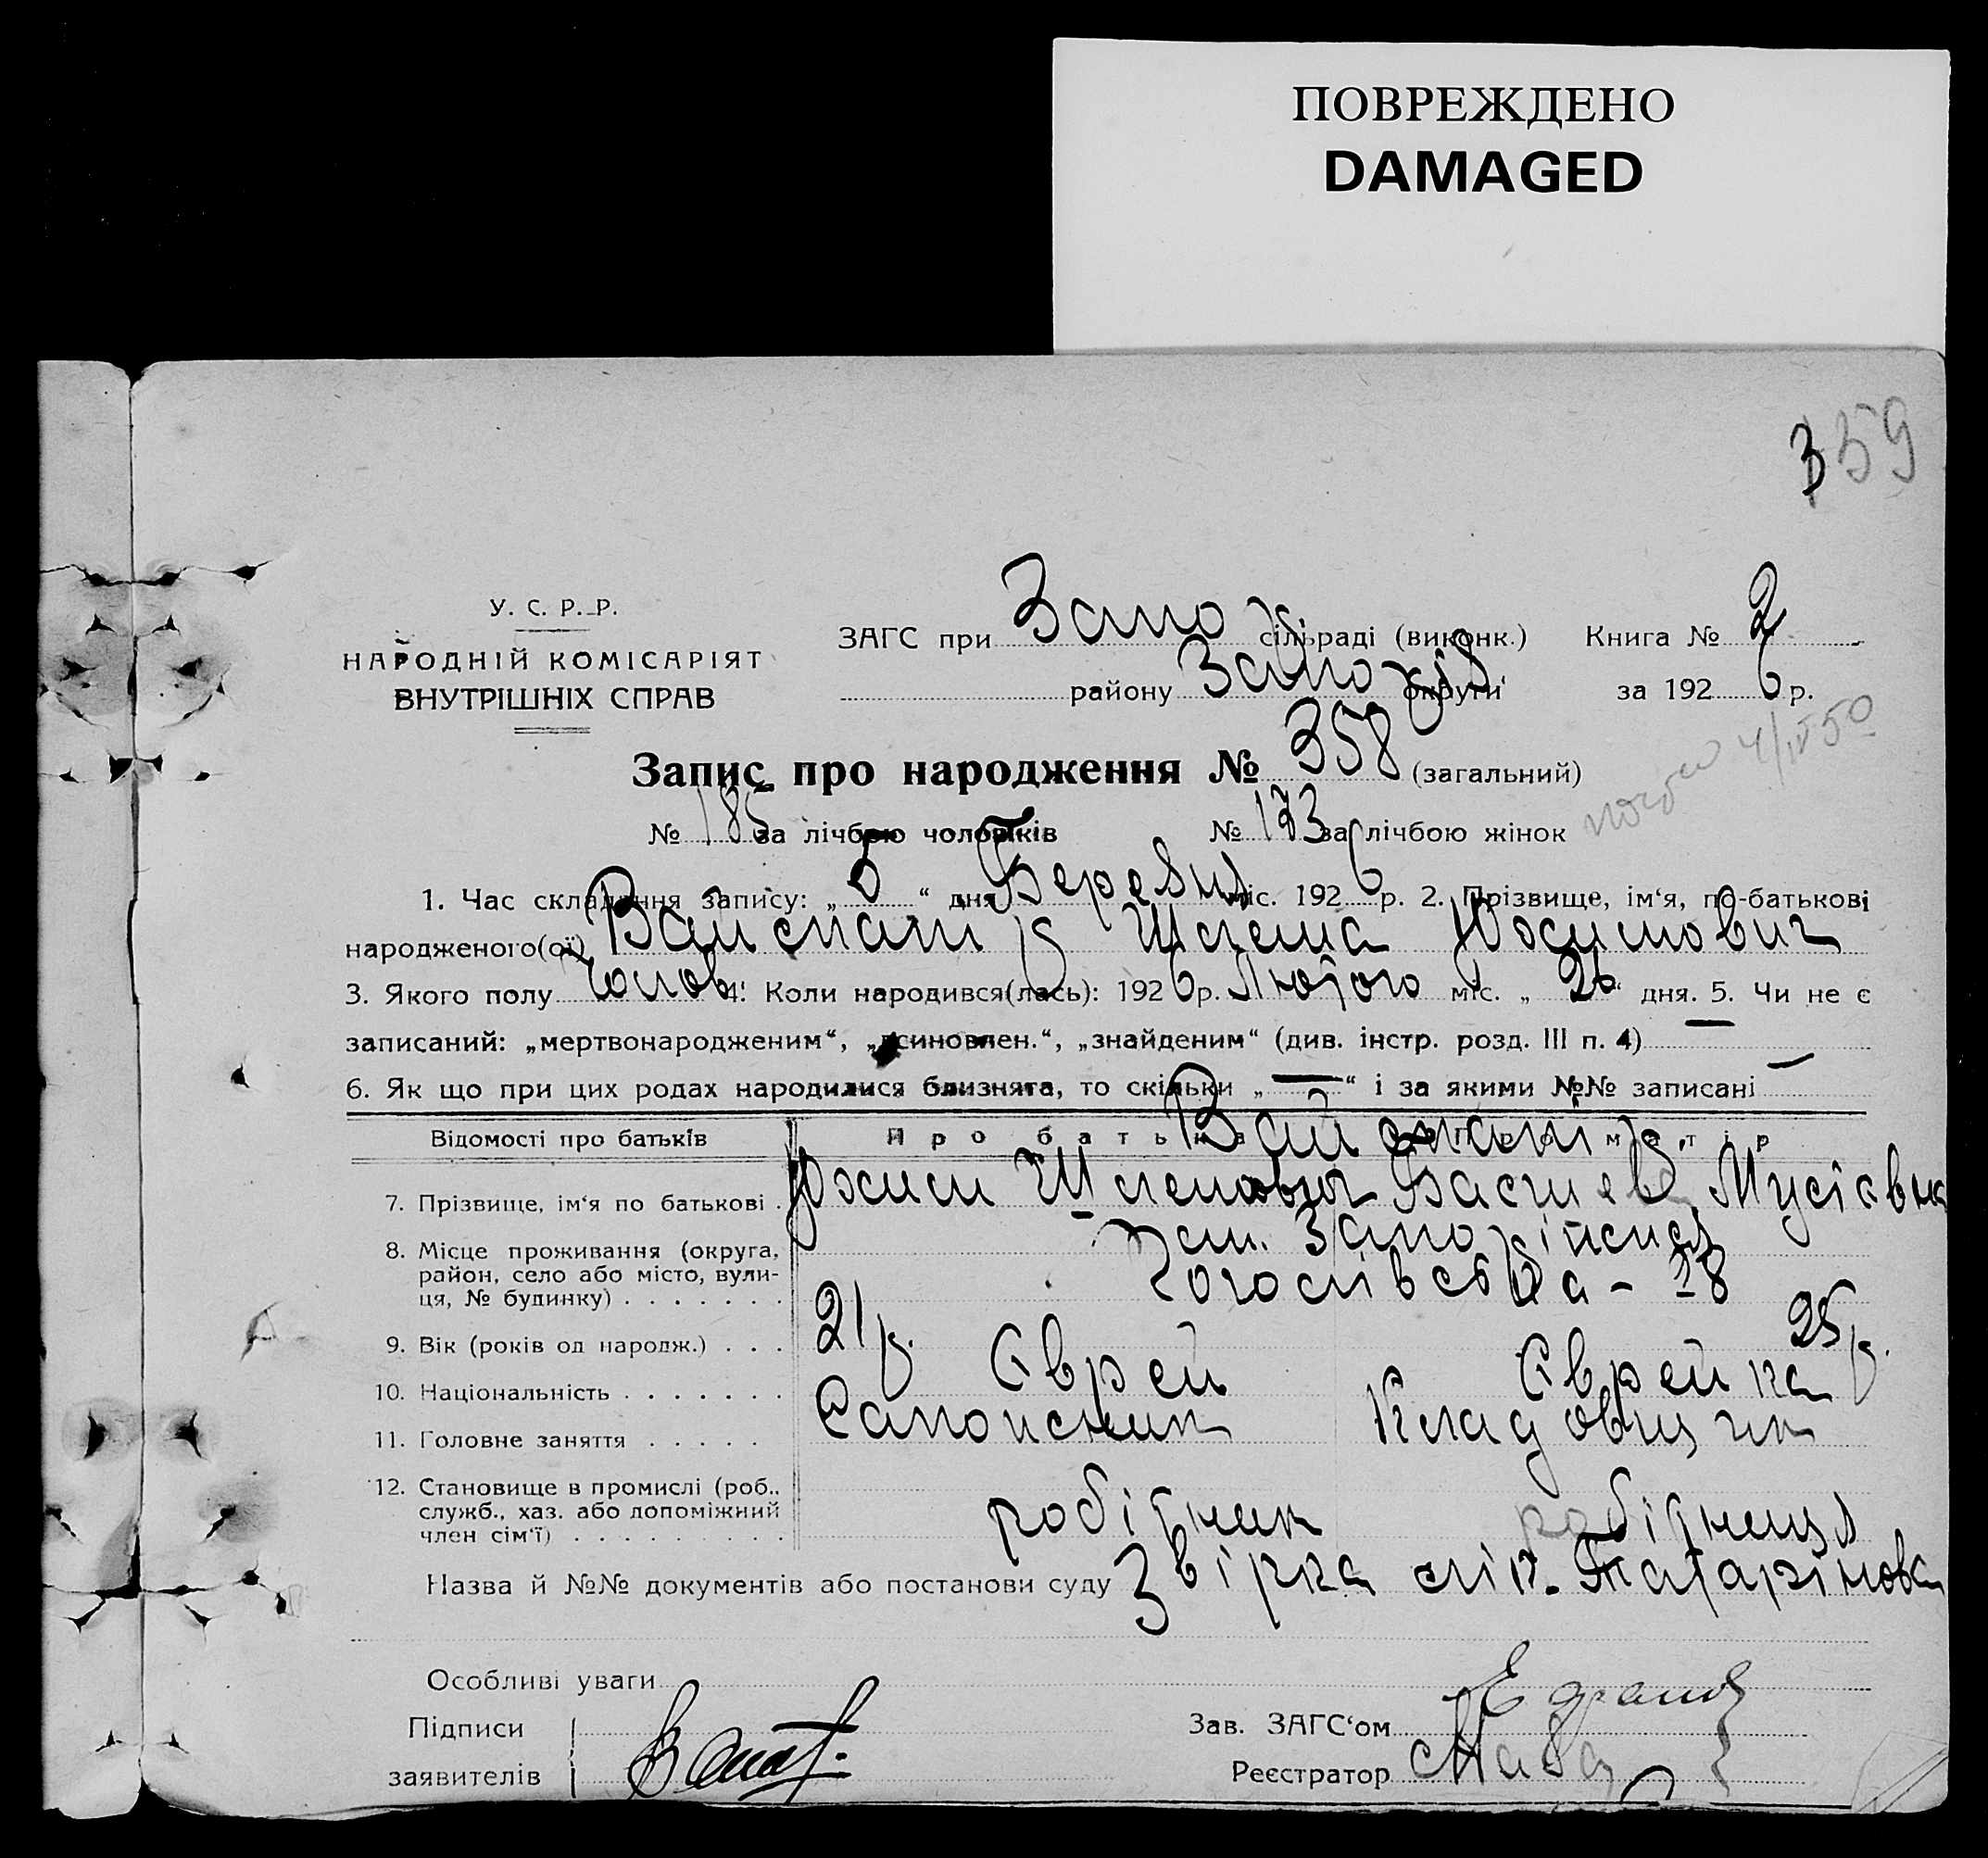 ПОВРЕЖДЕНО
DAMAGED
359
У. С. Р. Р.
НАРОДНІЙ КОМІСАРІЯТ
ВНУТРІШНІХ СПРАВ
ЗАГС при Запо сільраді (виконк.) Книга № 2
району округи за 1926 р.
Запис про народження № 358 (загальний)
4/IV 50
№ 185 за лічбою чоловіків № 173 за лічбою жінок
1. Час складання запису: „ 5 “ дня Березня міс. 1926 р. 2. Прізвище, ім‘я, по-батькові
народженого(ої) Вайспапір Шлема Юхимович
3. Якого полу Чолов 4. Коли народився(лась): 1926 р. Лютого міс. „ 26 “ дня. 5. Чи не є
записаний: „мертвонародженим“, „усиновлен.“, „знайденим“ (див. інстр. розд. III п. 4) —
6. Як що при цих родах народилися близнята, то скільки „ — “ і за якими №№ записані —
Відомості про батьків Про батька Про матір
Вайспапір
7. Прізвище, ім‘я по батькові . Юхим Шлемович Мусієвна
8. Місце проживання (округа,
район, село або місто, вули-
ця, № будинку) . . . . . . .
28
9. Вік (років од народж.) . . . 21 р. 25 р.
10. Національність . . . . . . . Єврей Єврейка
11. Головне заняття . . . . . Сапожник Кладовщик
12. Становище в промислі (роб..
служб., хаз. або допоміжний
член сім‘ї) . . . . . . . . . робітник робітниця
Назва й №№ документів або постанови суду Звірка лік. Татарінова
Особливі уваги
Підписи
заявителів
Зав. ЗАГС‘ом
Реєстратор